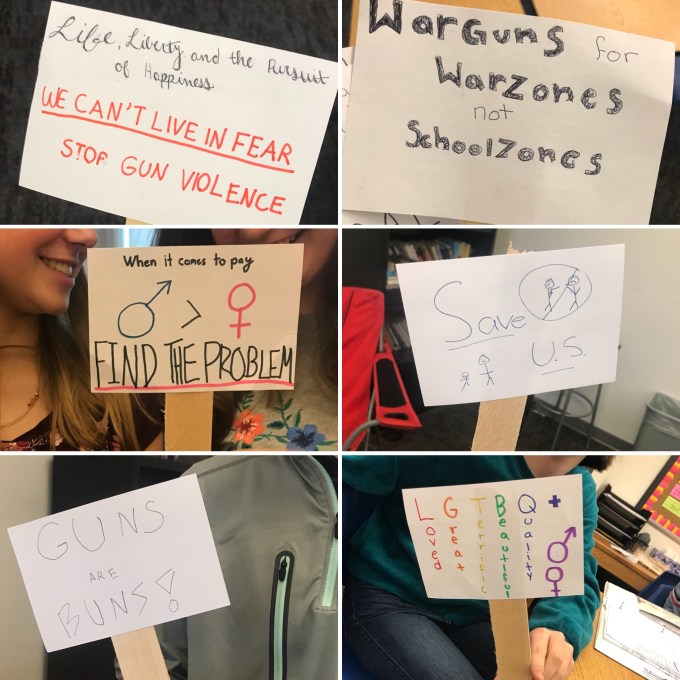 Life, Liberty and the Pursuit
of Happiness
WE CAN'T LIVE IN FEAR
STOP GUN VIOLENCE
WarGuns for
Warzones
not
SchoolZones
When it comes to pay
♂ > ♀
FIND THE PROBLEM
Save
U.S.
GUNS
ARE
BUNS!
Loved
Great
Terrific
Beautiful
Quality
+